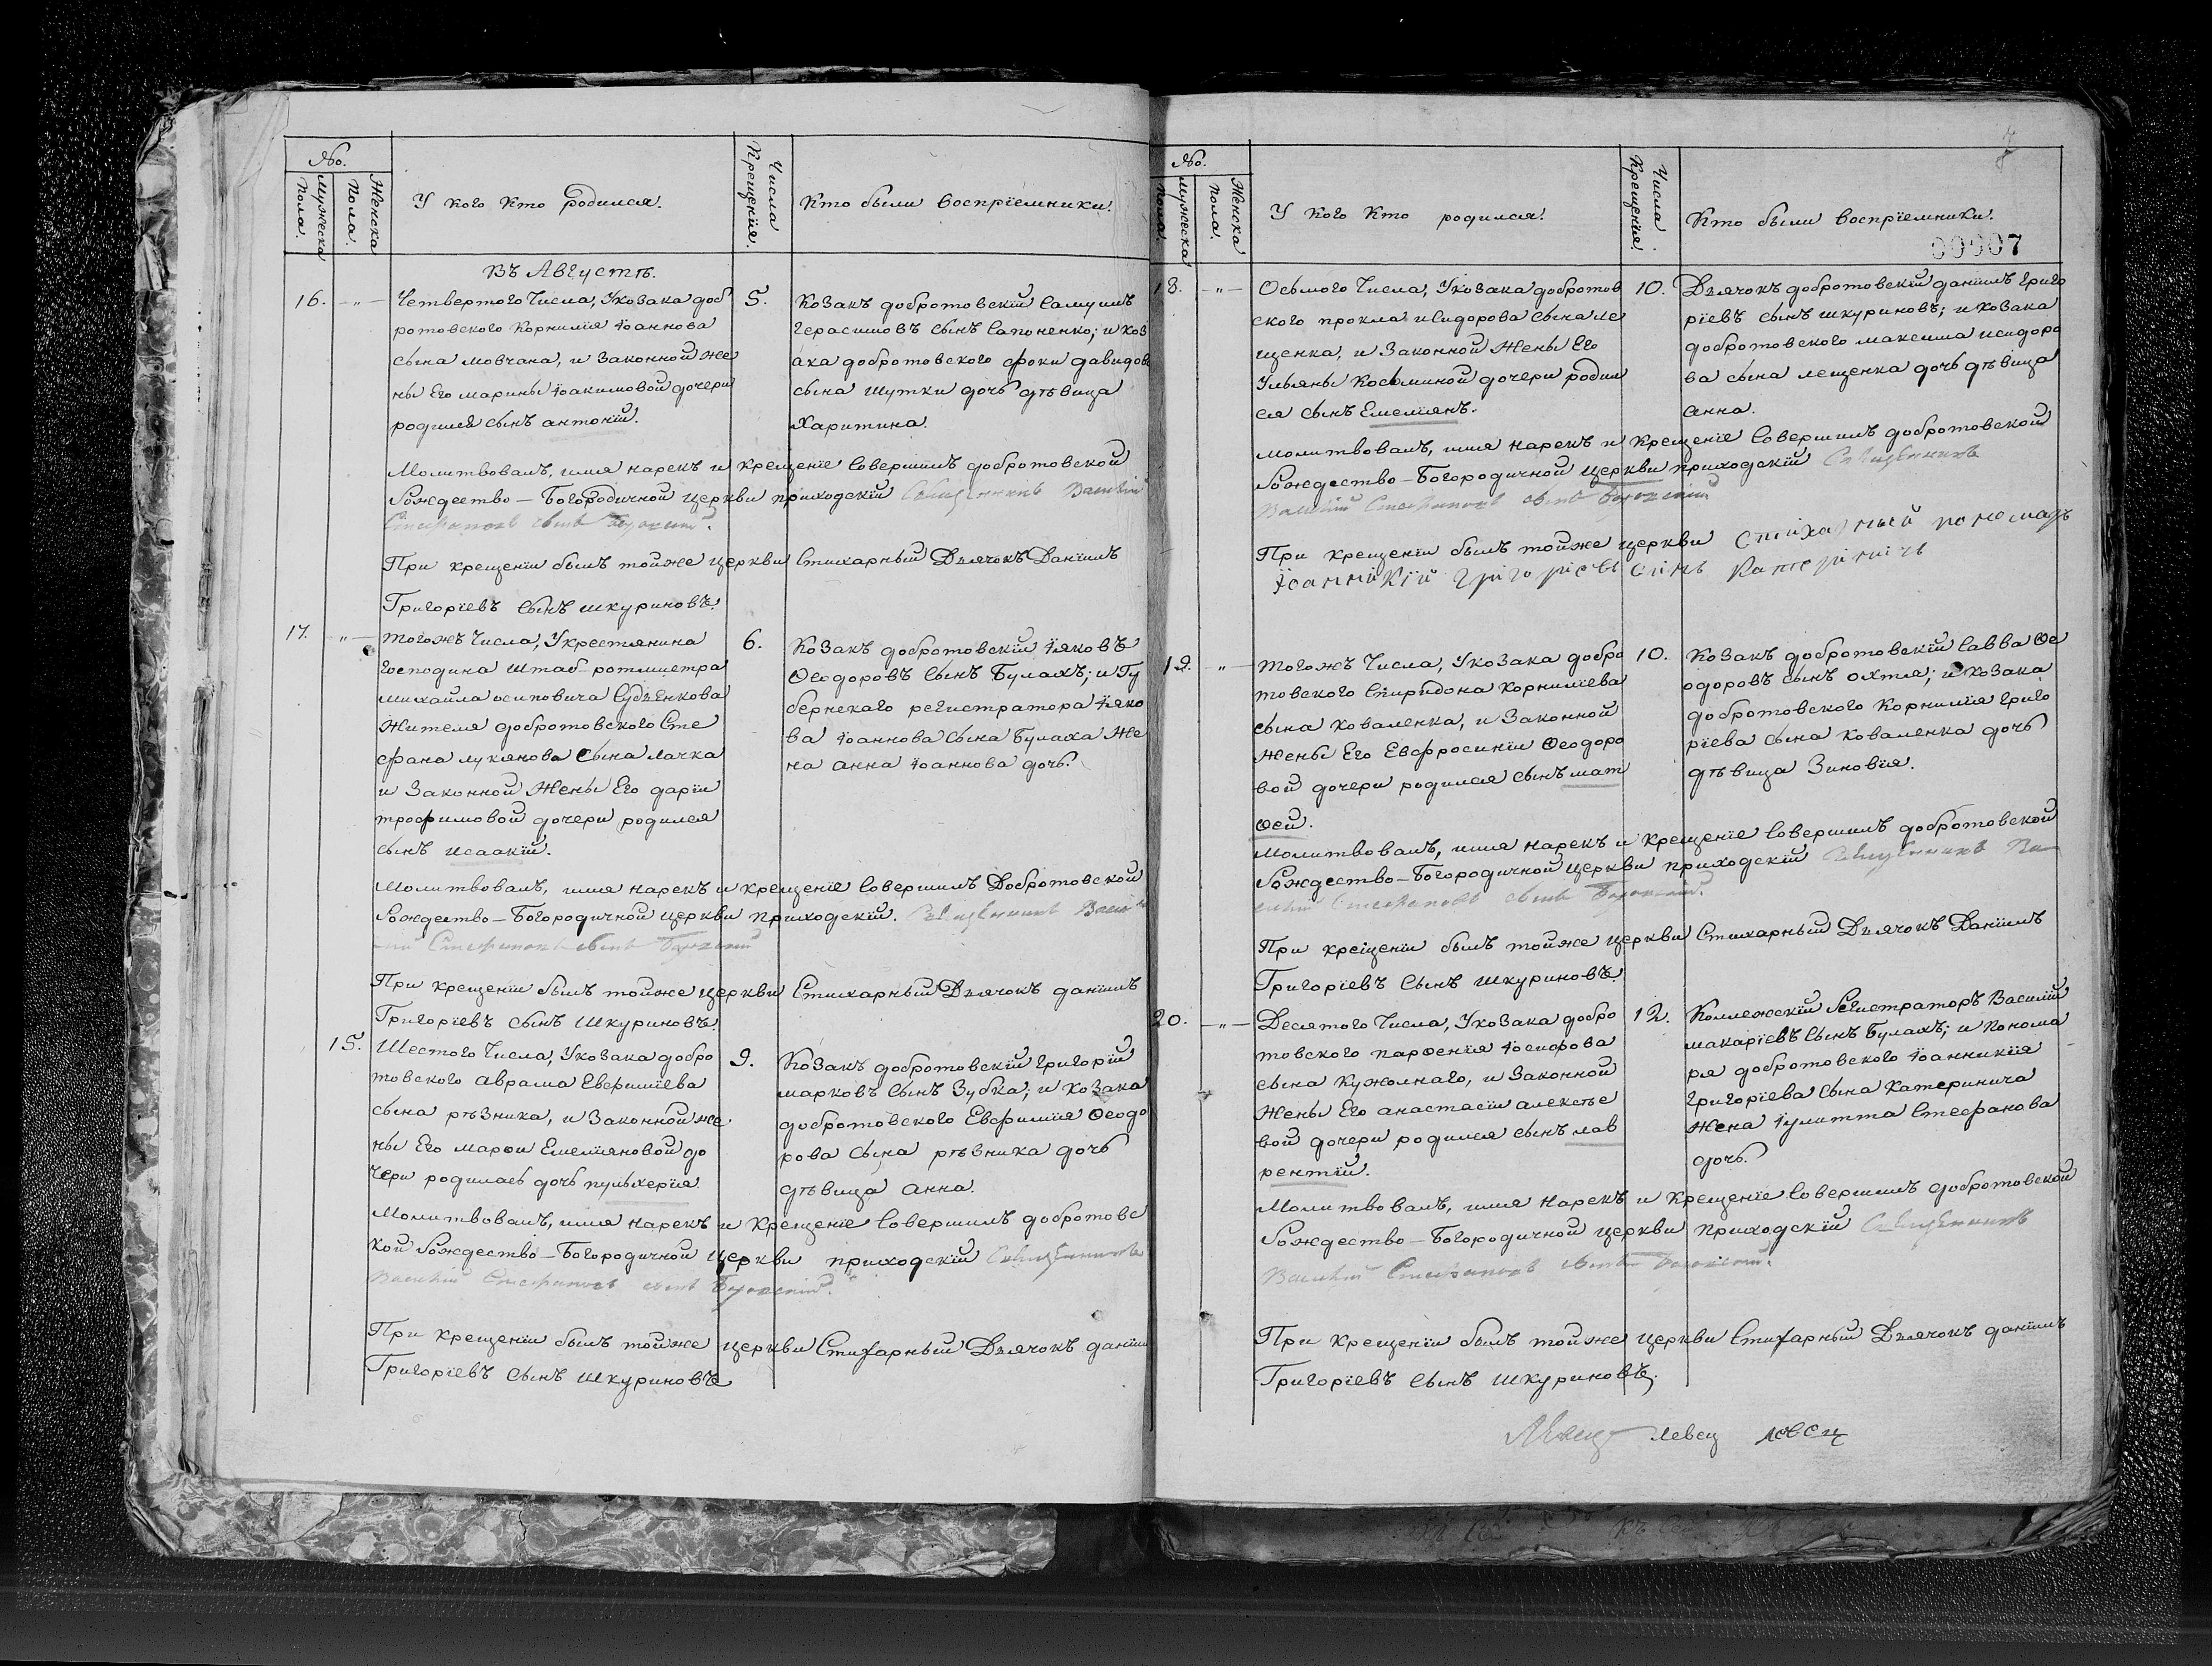 No.
Мужеска пола.
Женска пола.
У кого кто родился.
Числа Крещенїя.
Кто были воспрїемники.
Въ Августѣ.
16. -„- Четвертого Числа, У козака доб
ротовского Корнилїя Іоаннова
сына мовчана, и Законной же
ны Его марины Іоакимовой дочери
родился сынъ антонїй.
5.
Козакъ добротовскїй Самуилъ
Герасимовъ сынъ Сапоненко; и коз
ака добротовского фоки давидов
сына шутки дочь дѣвица
Харитина.
Молитвовалъ, имя нарекъ и крещенїе Совершилъ добротовской
Рождество-Богородичной церкви приходскїй Священникъ Василїй
Стефановъ сынъ
При крещенїи былъ тойже церкви Стихарный Дьячокъ Данїилъ
Григорїевъ Сынъ шкуриновъ.
17. „- тогожъ Числа, У крестянина
господина штаб-ротмистра
михаила осиповича Судъенкова
жителя добротовского Сте
фана лукянова Сына лачка
и Законной Жены Его дарїи
трофимовой дочери родился
сынъ исаакїй.
6.
Козакъ добротовскїй Іяковъ
Ѳеодоровъ Сынъ Булахъ; и Гу
бернскаго регистратора Іяко
ва Іоаннова Сына Булаха Же
на анна Іоаннова дочь.
Молитвовалъ, имя нарекъ и крещенїе Совершилъ Добротовской
Рождество-Богородичной церкви приходскїй. Священникъ Васи
лїй Стефановъ сынъ
При крещенїи былъ тойже церкви Стихарный Дьячокъ данїилъ
Григорїевъ сынъ шкуриновъ.
15. Шестого Числа, У козака добро
товского аврама Евфимїева
сына рѣзника, и Законной же
ны Его марѳы Емелїяновой до
чери родилась дочь пульхерїя.
9.
Козакъ добротовскїй григорїй
марковъ сынъ Зубка; и козака
добротовского Евфимїя Ѳеодо
рова Сына рѣзника дочь
дѣвица анна.
Молитвовалъ, имя нарекъ и крещенїе Совершилъ добротовс
кой Рождество-Богородичной церкви приходскїй Священникъ
Василїй Стефановъ сынъ
При крещенїи былъ тойже церкви Стихарный Дьячокъ данїил
Григорїевъ сынъ шкуриновъ
7
No.
Мужеска пола.
Женска пола.
У кого кто родился.
Числа Крещенїя.
Кто были воспрїемники.
00007
18. -„- Осьмого Числа, У козака добротов
ского прокла исидорова сына ле
щенка, и Законной Жены Его
Ульяны Косьминой дочери родил
ся сынъ Емелїянъ.
10.
Дьячокъ добротовскїй данїилъ григо
рїевъ сынъ шкуриновъ; и козака
добротовского максима исидоро
ва сына лещенка дочь дѣвица
анна.
молитвовалъ, имя нарекъ и крещенїе Совершилъ добротовской
Рождество-Богородичной церкви приходскїй Священникъ
Василїй Стефановъ сынъ
При крещенїи былъ тойже церкви стїхарный пономаръ
їоаннїкїй грїгорїевъ сїнъ катерїнїчъ
19. -„- тогожъ Числа, У козака добро
товского Спиридона корнилїева
сына коваленка, и Законной
жены Его Евфросинїи Ѳеодоро
вой дочери родился сынъ мат
ѳей.
10.
Козакъ добротовскїй Савва Ѳе
одоровъ сынъ охтя; и козака
добротовского Корнилїя григо
рїева сына коваленка дочь
дѣвица Зиновїя.
Молитвовалъ, имя нарекъ и крещенїе Совершилъ добротовской
Рождество-Богородичной церкви приходскїй Священникъ Ва
силїй Стефановъ сынъ
При крещенїи былъ тойже церкви Стихарный Дьячокъ Данїилъ
Григорїевъ Сынъ шкуриновъ.
20. -„- Десятого Числа, У козака добро
товского парѳенїя Іосифова
сына кужолнаго, и Законной
жены Его анастасїи алексѣе
вой дочери родился сынъ лав
рентїй.
12.
Коллежскїй Регистраторъ Василїй
макарїевъ Сынъ Булахъ; и понома
ря добротовского Іоанникїя
григорїева сына катеринича
жена Іулитта Стефанова
дочь.
Молитвовалъ, имя нарекъ и крещенїе Совершилъ добротовской
Рождество-Богородичной церкви приходскїй Священникъ
Василїй Стефановъ сынъ
При крещенїи былъ тойже церкви Стихарный Дьячокъ данїилъ
Григорїевъ сынъ шкуриновъ.
левец левец